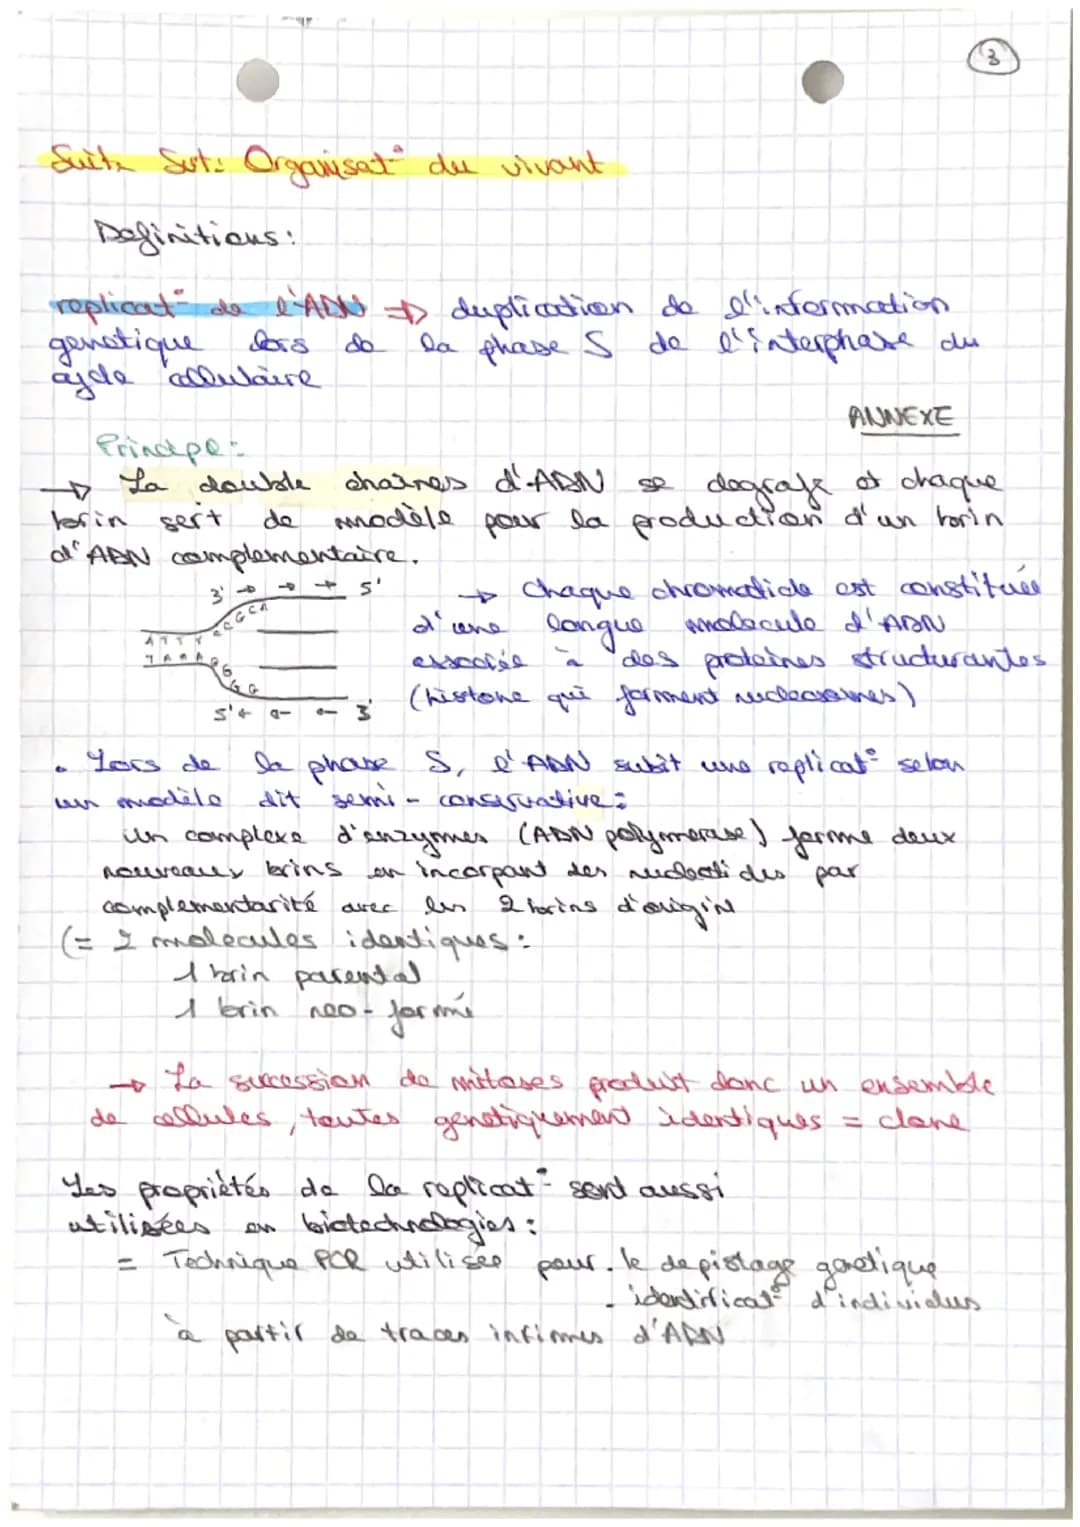 3
Suite Svt: Organisat° du vivant
Definitions:
replicat° de l'ADN => duplication de l'information
genetique lors de la phase S de l'interphase du
cycle cellulaire
ANNEXE
Principe:
→ La double chaines d'ADN se degrafe et chaque
brin sert de modèle pour la production d'un brin
d'ADN complementaire.
3' → → → 5'
→ Chaque chromatide est constituée
d'une longue molecule d'ADN
associée à des proteines structurantes
(histone qui forment nucleosomes)
5' ← ← ← 3'
• Lors de la phase S, l'ADN subit une replicat° selon
un modèle dit semi-conservative:
Un complexe d'enzymes (ADN polymerase) forme deux
nouveaux brins en incorpant des nucleotides par
complementarité avec les 2 brins d'origin
(= 2 molecules identiques:
1 brin parental
1 brin neo-formé
→ La sucession de mitoses produit donc un ensemble
de cellules, toutes genetiquement identiques = clone
Les propriètés de la replicat° sont aussi
utilisées en biotechnologies:
= Technique PCR utilisée pour. le depistage genetique
- identificat° d'individus
à partir de traces infimes d'ADN